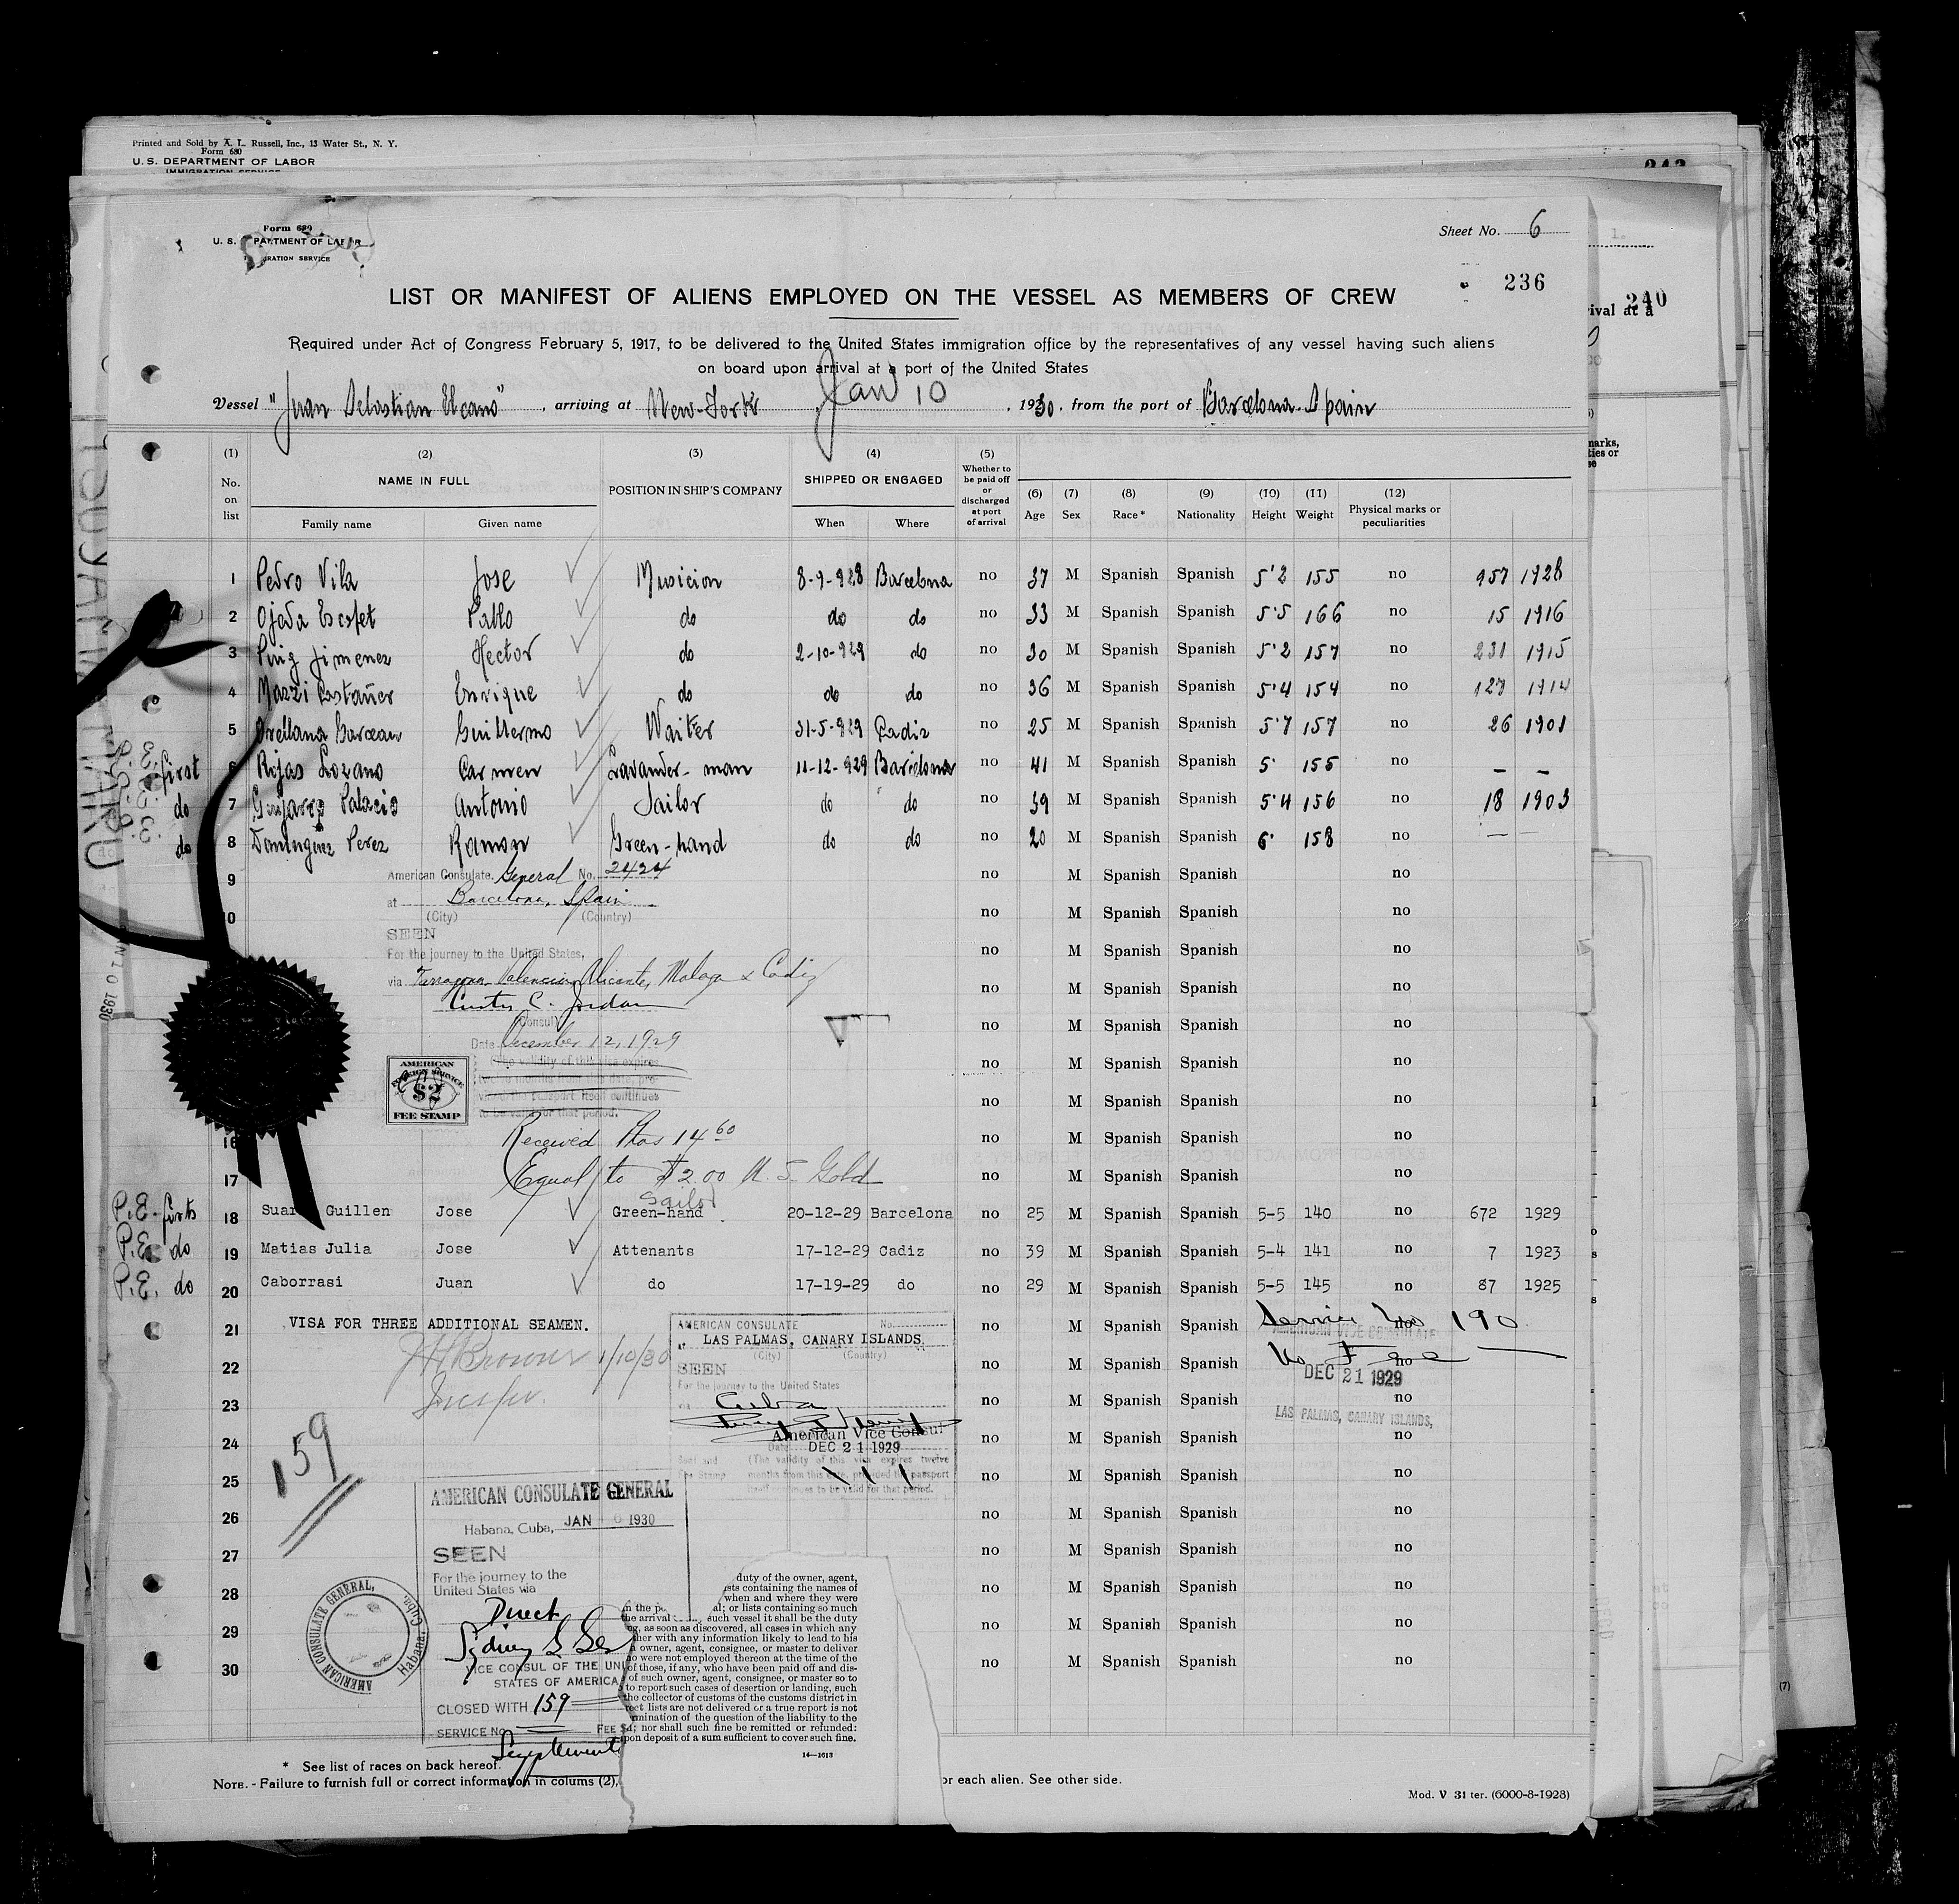 Printed and Sold by A. L. Russell, Inc., 13 Water St., N. Y.
Form 680
U. S. DEPARTMENT OF LABOR
IMMIGRATION SERVICE
Form 680
U. S. PARTMENT OF LABOR
GRATION SERVICE
Sheet No. 6
236
240
LIST OR MANIFEST OF ALIENS EMPLOYED ON THE VESSEL AS MEMBERS OF CREW
Required under Act of Congress February 5, 1917, to be delivered to the United States immigration office by the representatives of any vessel having such aliens
on board upon arrival at a port of the United States
Vessel "Juan Sebastian Elcano", arriving at New-York, Jan 10, 1930, from the port of Barcelona-Spain
(1) (2) (3) (4) (5) (6) (7) (8) (9) (10) (11) (12)
No. on list NAME IN FULL Family name Given name POSITION IN SHIP'S COMPANY SHIPPED OR ENGAGED When Where Whether to be paid off or discharged at port of arrival Age Sex Race* Nationality Height Weight Physical marks or peculiarities
1 Pedro Vila Jose Musicion 8-9-928 Barcelona no 37 M Spanish Spanish 5'2 155 no 957 1928
2 Ojeda Escofet Pablo do do do no 33 M Spanish Spanish 5'5 166 no 15 1916
3 Puig Jimenez Hector do 2-10-929 do no 30 M Spanish Spanish 5'2 157 no 231 1915
4 Mazzi Castañer Enrique do do do no 36 M Spanish Spanish 5'4 154 no 127 1914
5 Orellana Guillermo Waiter 31-5-929 Cadiz no 25 M Spanish Spanish 5'7 157 no 26 1901
first 6 Rijas Lozano Carmen Lavander-man 11-12-929 Barcelona no 41 M Spanish Spanish 5' 155 no — —
do 7 Guijarro Palacio Antonio Sailor do do no 39 M Spanish Spanish 5'4 156 no 18 1903
do 8 Dominguez Perez Ramon Green-hand do do no 20 M Spanish Spanish 6' 158 no — —
9 no M Spanish Spanish no
American Consulate General No. 2424
at Barcelona, Spain
(City) (Country)
10 no M Spanish Spanish no
SEEN
For the journey to the United States,
no M Spanish Spanish no
via Tarragona, Valencia, Alicante, Malaga & Cadiz
no M Spanish Spanish no
Curtis C. Jordan
(Consul)
no M Spanish Spanish no
Date December 12, 1929
(The validity of this visa expires
twelve months from this date, pro-
vided the passport itself continues
to be valid for that period.
no M Spanish Spanish no
AMERICAN
FOREIGN SERVICE
$2
FEE STAMP
no M Spanish Spanish no
16 no M Spanish Spanish no
Received Ptas 14 60
Equal to $2.00 U. S. Gold
17 no M Spanish Spanish no
Sailor
P.E. firts 18 Suar Guillen Jose Green-hand 20-12-29 Barcelona no 25 M Spanish Spanish 5-5 140 no 672 1929
P.E. do 19 Matias Julia Jose Attenants 17-12-29 Cadiz no 39 M Spanish Spanish 5-4 141 no 7 1923
P.E. do 20 Caborrasi Juan do 17-19-29 do no 29 M Spanish Spanish 5-5 145 no 87 1925
21 VISA FOR THREE ADDITIONAL SEAMEN. no M Spanish Spanish no
1/10/30
AMERICAN CONSULATE No.
LAS PALMAS, CANARY ISLANDS.
(City) (Country)
SEEN
For the journey to the United States
via Cuba
American Vice Consul
Date DEC 21 1929
Seal and Fee Stamp (The validity of this visa expires twelve
months from this date, provided the passport
itself continues to be valid for that period.
Service No 190
AMERICAN VICE CONSULATE
No Fee
DEC 21 1929
LAS PALMAS, CANARY ISLANDS,
22 no M Spanish Spanish no
23 no M Spanish Spanish no
24 no M Spanish Spanish no
159
25 no M Spanish Spanish no
26 no M Spanish Spanish no
27 no M Spanish Spanish no
28 no M Spanish Spanish no
29 no M Spanish Spanish no
30 no M Spanish Spanish no
AMERICAN CONSULATE GENERAL
Habana, Cuba, JAN 6 1930
SEEN
For the journey to the
United States via
Direct
VICE CONSUL OF THE UNI
STATES OF AMERICA
CLOSED WITH 159
SERVICE No. FEE $
Supplement
AMERICAN CONSULATE GENERAL, Habana, Cuba.
duty of the owner, agent,
sts containing the names of
when and where they were
al; or lists containing so much
he arrival such vessel it shall be the duty
g, as soon as discovered, all cases in which any
her with any information likely to lead to his
owner, agent, consignee, or master to deliver
o were not employed thereon at the time of the
of those, if any, who have been paid off and dis-
of such owner, agent, consignee, or master so to
to report such cases of desertion or landing, such
the collector of customs of the customs district in
rect lists are not delivered or a true report is not
mination of the question of the liability to the
; nor shall such fine be remitted or refunded:
pon deposit of a sum sufficient to cover such fine.
14—1613
* See list of races on back hereof.
NOTE. - Failure to furnish full or correct information in colums (2), or each alien. See other side.
Mod. V 31 ter. (6000-8-1928)